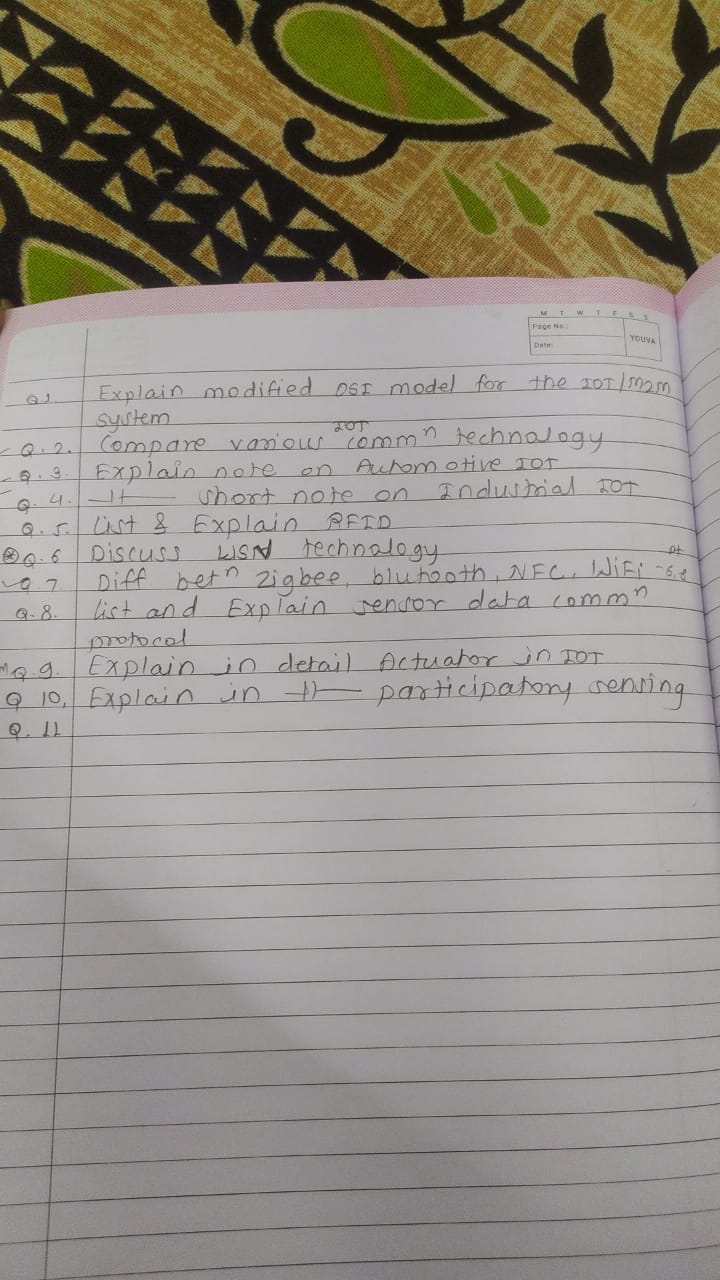 M T W T F S S
Page No.:
Date:
YOUVA
Q1. Explain modified OSI model for the IOT/M2M
system
Q. 2. Compare various IOT commⁿ technalogy
Q. 3. Explain note on Automotive IOT
Q. 4. —11— short note on Industrial IOT
Q. 5. List & Explain RFID
Q. 6 Discuss WSN technalogy
Q. 7 Diff betⁿ Zigbee, blutooth, NFC, WiFi
Q. 8. list and Explain sensor data commⁿ
protocol
Q. 9. Explain in detail Actuator in IOT
Q 10, Explain in —11— participatory sensing
Q. 11